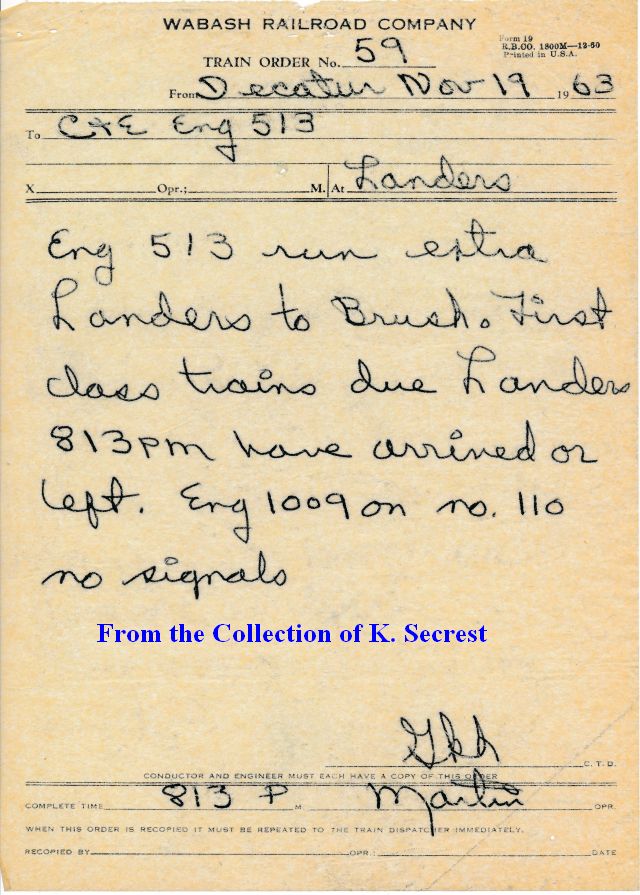 WABASH RAILROAD COMPANY
Form 19
R.B.CO. 1800M—12-60
Printed in U.S.A.
TRAIN ORDER No. 59
From Decatur Nov 19 1963
To C+E Eng 513
X Opr.; M. At Landers
Eng 513 run extra
Landers to Brush. First
class trains due Landers
813pm have arrived or
left. Eng 1009 on no. 110
no signals
From the Collection of K. Secrest
GKH C.T.D.
CONDUCTOR AND ENGINEER MUST EACH HAVE A COPY OF THIS ORDER
COMPLETE TIME 813 P M Martin OPR.
WHEN THIS ORDER IS RECOPIED IT MUST BE REPEATED TO THE TRAIN DISPATCHER IMMEDIATELY.
RECOPIED BY OPR.: DATE